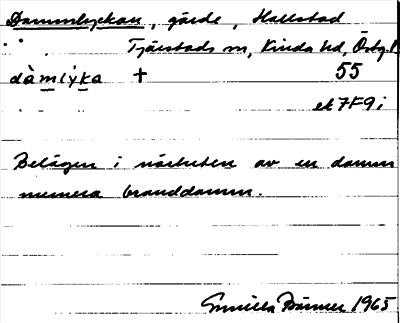 Dammlyckan, gärde, Hallstad
Tjärstads sn, Kinda hd, Östg.
dàmlýka + 55
ek 7F9i
Belägen i närheten av en damm
numera branddamm.
Gunilla 1965